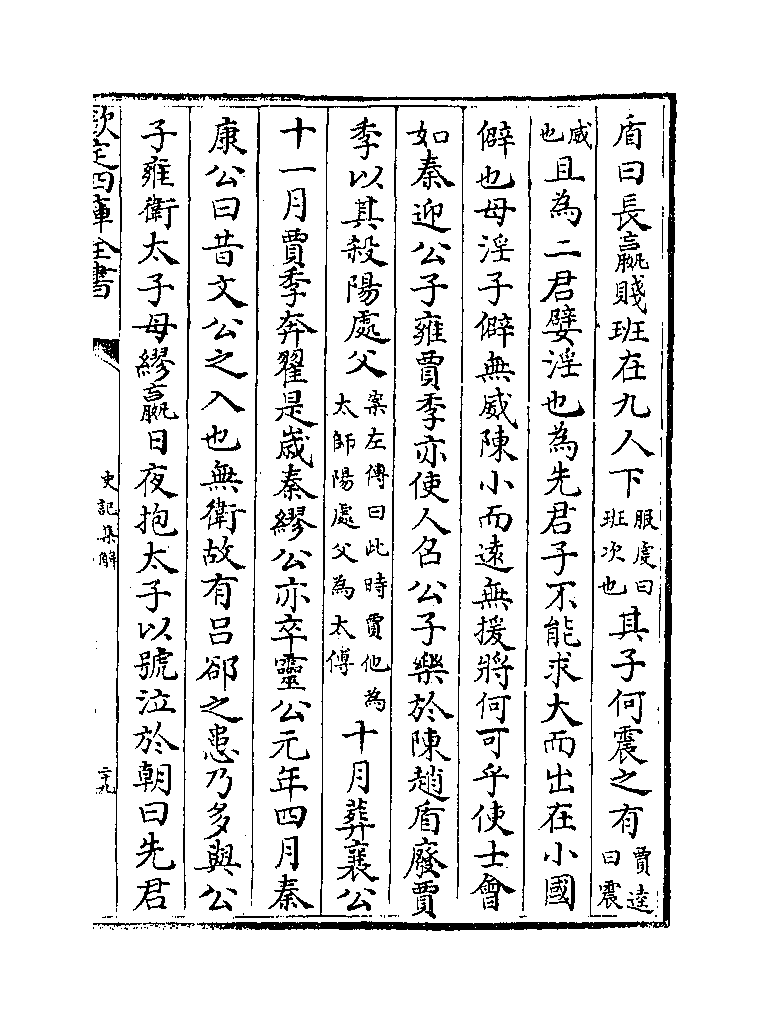 盾曰長嬴賤班在九人下服䖍曰班次也其子何震之有賈逵曰震
威也且為二君嬖淫也為先君子不能求大而出在小國
僻也母淫子僻無威陳小而遠無援將何可乎使士會
如秦迎公子雍賈季亦使人召公子樂於陳趙盾廢賈
季以其殺陽處父案左傳曰此時賈他為太師陽處父為太傅十月葬襄公
十一月賈季奔翟是歲秦繆公亦卒靈公元年四月秦
康公曰昔文公之入也無衛故有呂郤之患乃多與公
子雍衛太子母繆嬴日夜抱太子以號泣於朝曰先君
欽定四庫全書
史記集解
三十九